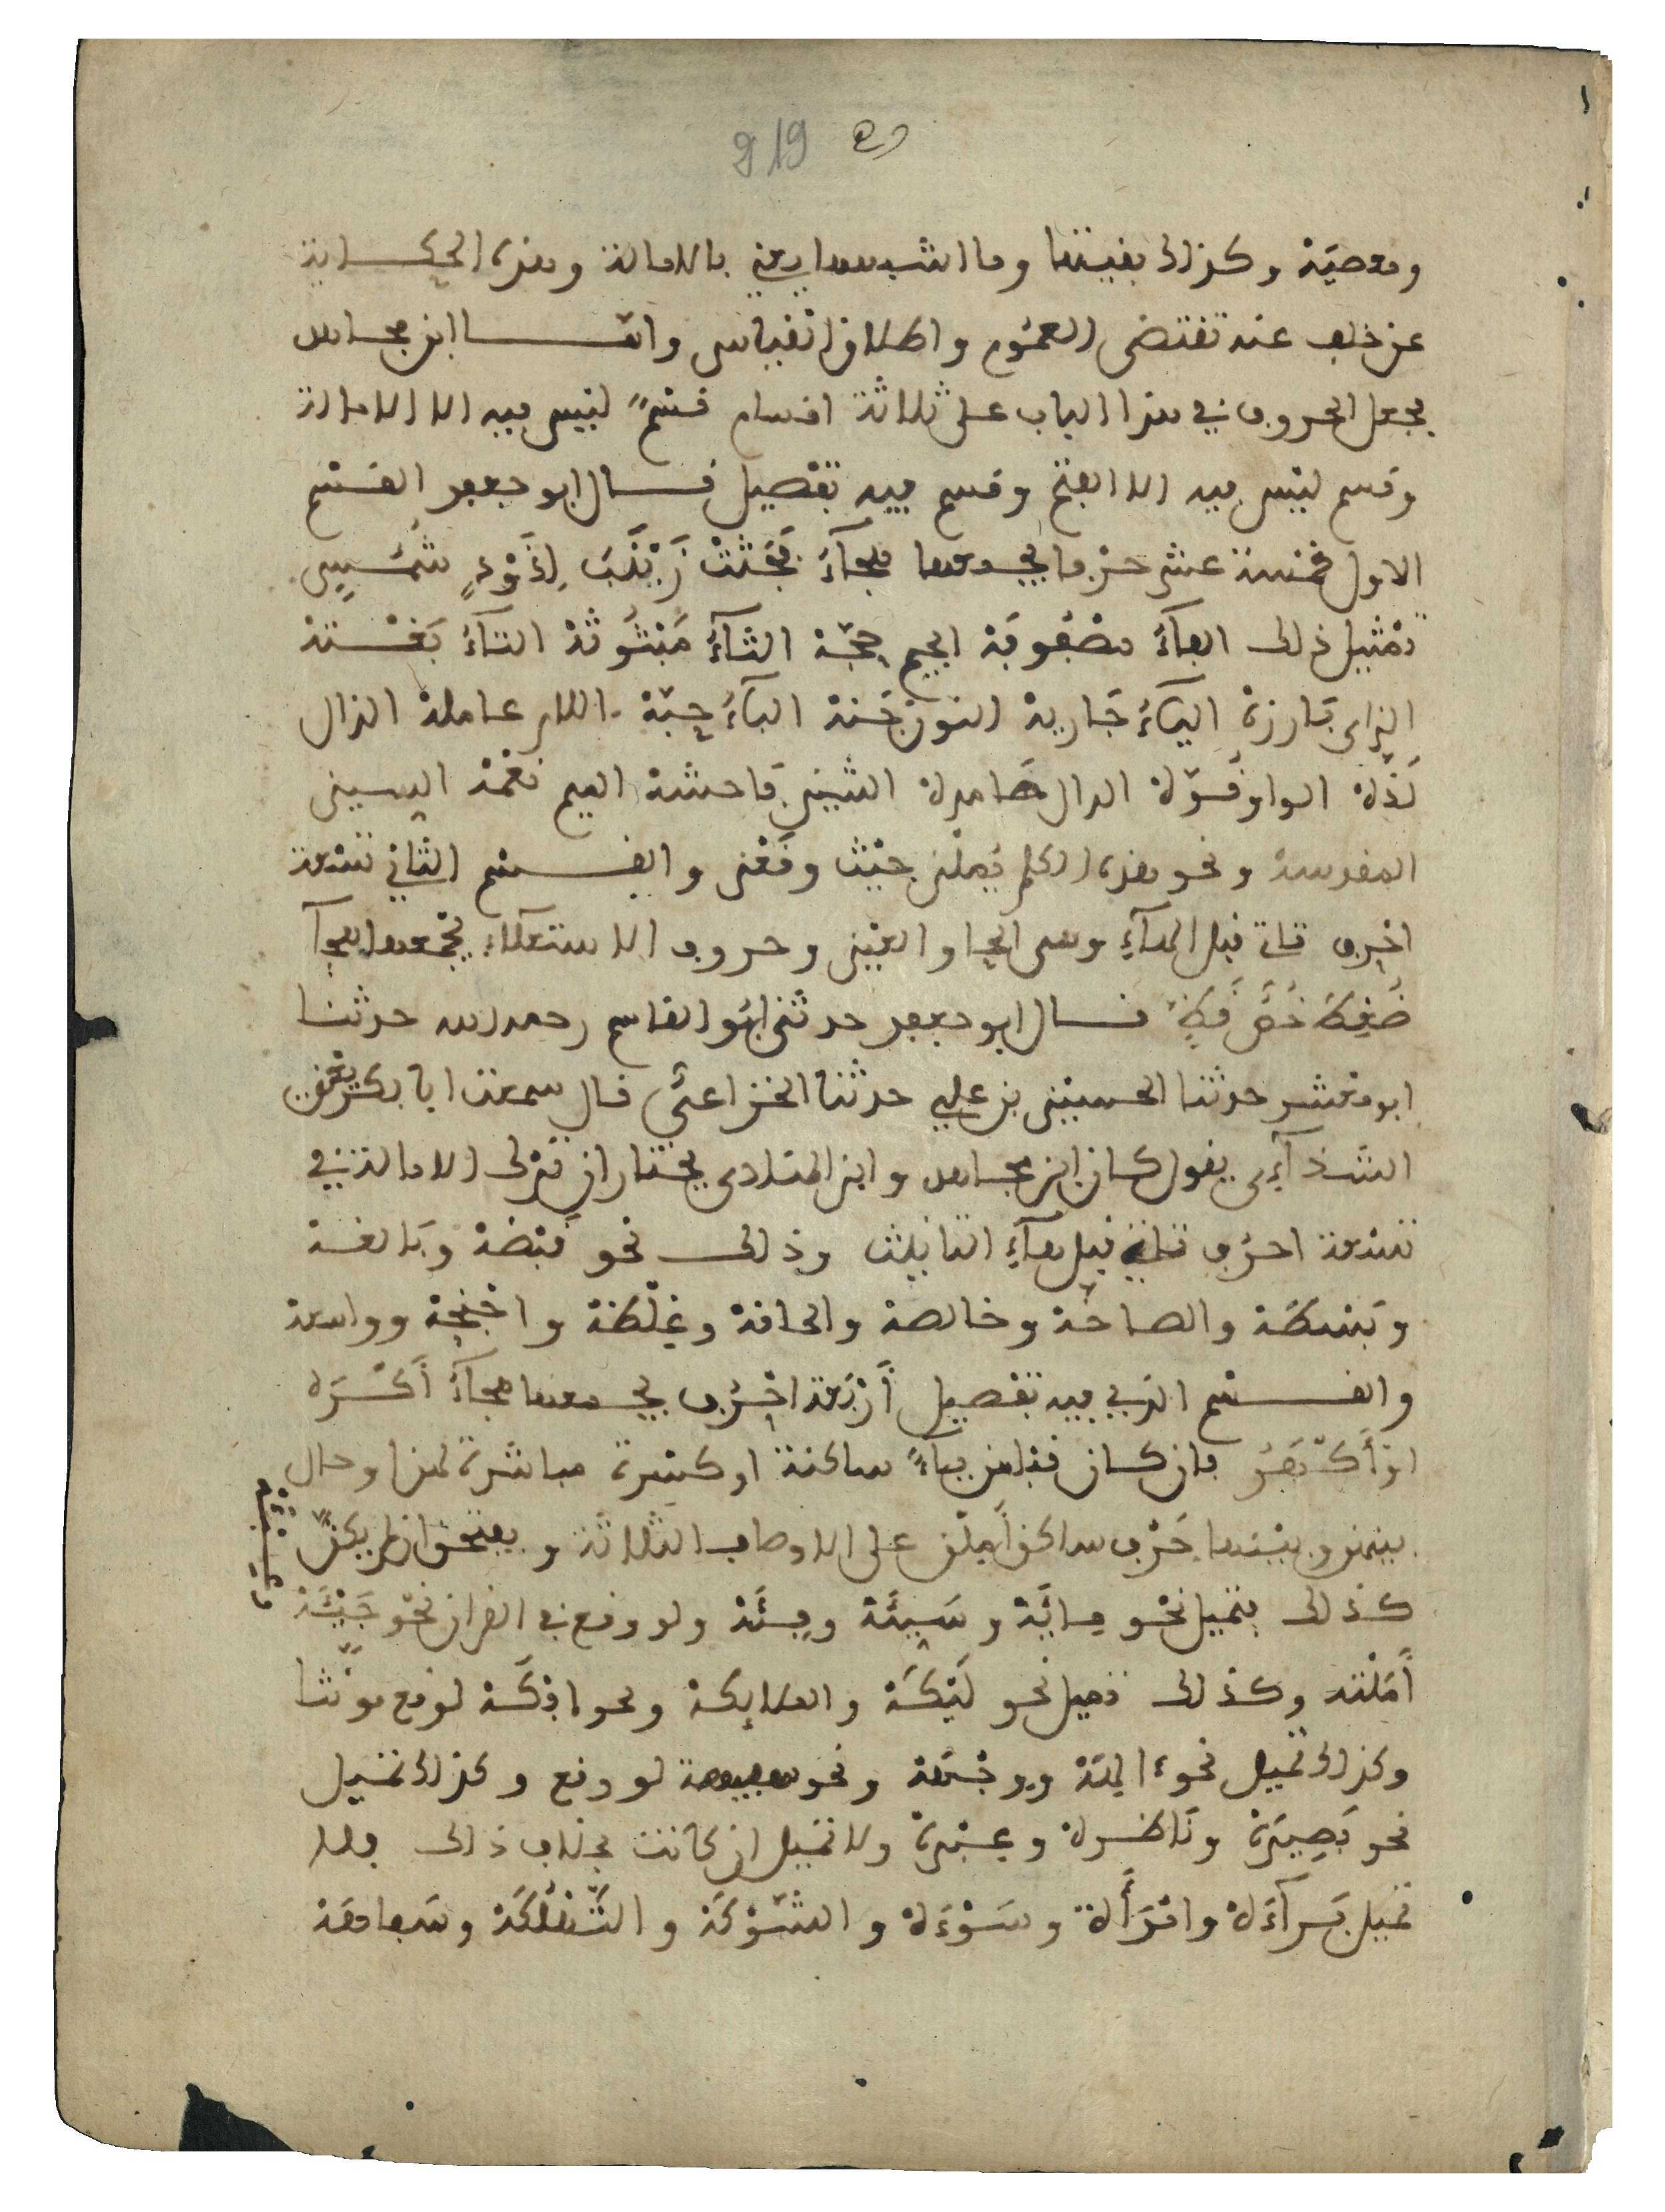 919
ومعصية وكذلك بقيتها وما اشبهها يعني بالامالة وهذه الحكاية
عن خلف عنه تقتضي العموم واطلاق القياس وامّا ابن مجاهد
فجعل الحروف في هذا الباب على ثلاثة اقسام قسمٌ ليس فيه الا الامالة
وقسم ليس فيه الا الفتح وقسم فيه تفصيل قال ابو جعفر القسم
الاول خمسة عشر حرفا يجمعها هجاءُ فجثت زينب لذود شمس
تمثيل ذلك الفاءُ مصفوفة الجيم حجّة الثاءُ مبثوثة التاءُ بغتة
الزاى بارزة الياءُ جارية النون جنة الباءُ حبّة اللام عاملة الذال
لذّة الواو قوّة الدال هامدة الشين فاحشة الميم نعمة السين
المقدسة ونحو هذه الكلم يملن حيث وقعن والقسم الثاني تسعة
احرف تاتي قبل الهاءِ وهى الحا والعين وحروف الاستعلاءِ يجمعها هجآ
قال ابو جعفر حدثني ابو القاسم رحمه الله حدثنا
ابو معشر حدثنا الحسين بن علي حدثنا الخزاعي قال سمعت ابا بكر
الشذآءى يقول كان ابن مجاهد وابن المنادى يختاران ترك الامالة في
تسعة احرف تاتي قبل هآءِ التانيث وذلك نحو قبضة وبالغة
وبسطة والصاخة وخالصة والحاقة وغلظة واجنحة وواسعة
والقسم الذي فيه تفصيل أربعة احرف يجمعها هجآءُ أكره
فان كان قبلهن ياءً ساكنة او كسرة مباشرة لهن او حال
بينهن وبينها حرف ساكن أملن على الاوصاف الثلاثة ويفتحن ان لم يكن
كذلك فتميل نحو مائة وسيئة وفئة ولو وقع في القران نحو جيئة
أملته وكذلك تميل نحو ليكة والملايكة ونحو لو وقع مونثا
وكذلك تميل نحو ءالهة ووجهة ونحو لو وقع وكذلك تميل
نحو بصيرة وناظرة وعبرة ولا تميل ان كانت بخلاف ذلك فلا
تميل برآءة وامرأة وسوءة والشوكة والتهلكة وسفاهة